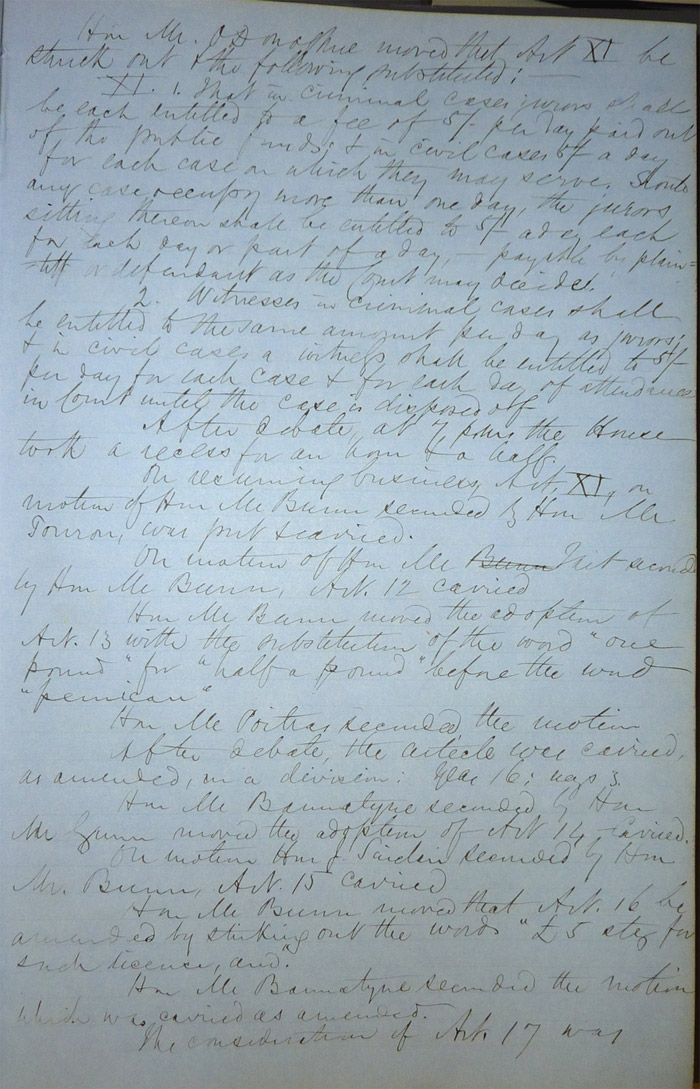 Hon Mr. O'Donoghue moved that Art XI be
struck out & the following substituted: —
XI. 1. That in criminal cases jurors shall
be each entitled to a fee of 5/- per day paid out
of the public funds; & in civil cases 5/- a day
for each case on which they may serve. Should
any case occupy more than one day, the jurors
sitting thereon shall be entitled to 5/- a day each
for each day or part of a day, — payable by plain=
=tiff or defendant as the Court may decide.
2. Witnesses in criminal cases shall
be entitled to the same amount per day as jurors;
& in civil cases a witness shall be entitled to 5/-
per day for each case & for each day of attendance
in Court until the case is disposed off
After debate, at 7 p.m. the House
took a recess for an hour & a half.
On resuming business, Art. XI, on
motion of Hon Mr Bunn seconded by Hon Mr
Touron, was put & carried.
On motion of Hon Mr Bunn Tait seconded
by Hon Mr Bunn, Art. 12 carried
Hon Mr Bunn moved the adoption of
Art. 13 with the substitution of the word "one
pound" for "half a pound" before the word
"pemican"
Hon Mr Poitras seconded the motion
After debate, the article was carried,
as amended, on a division: Yeas 16; nays 3.
Hon Mr Bannatyne seconded by Hon
Mr Gunn moved the adoption of Art 14, carried.
On motion Hon J. Sinclair seconded by Hon
Mr. Bunn, Art. 15 carried
Hon Mr Bunn moved that Art. 16 be
amended by striking out the words "£5 stg for
such license, and.
Hon Mr Bannatyne seconded the motion
which was carried as amended.
The consideration of Art. 17 was